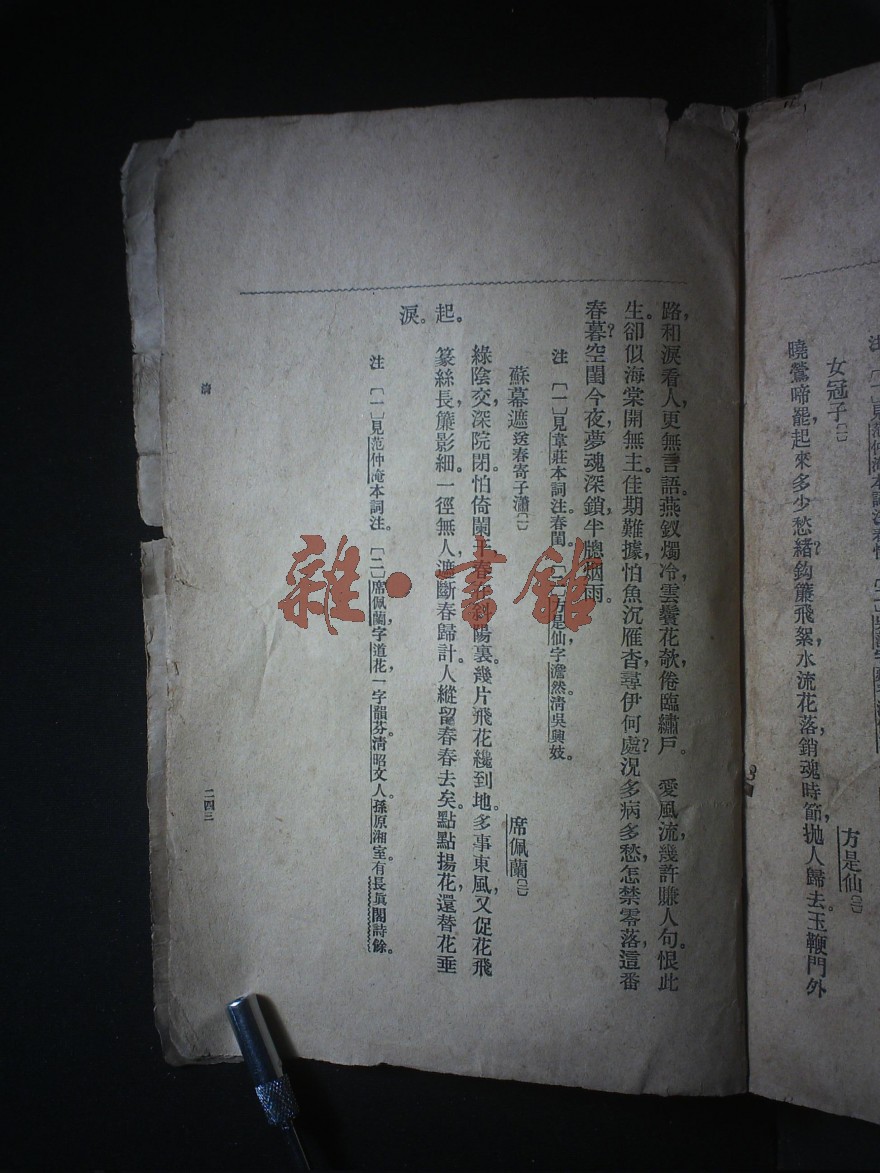 女冠子〔一〕
方是仙〔二〕
曉鶯啼罷，起來多少愁緒？鈎簾飛絮，水流花落，銷魂時節，抛人歸去。玉鞭門外
路，和淚看人，更無言語。燕釵燭冷，雲鬢花欹，倦臨繡戶。　愛風流幾許賺人句。恨此
生。卻似海棠開無主。佳期難據，怕魚沉雁杳，尋伊何處？況多病多愁，怎禁零落，這番
春暮？空閨今夜，夢魂深鎖，半牕烟雨。
注　〔一〕見韋莊本詞注。春閨。〔二〕方是仙，字澹然。清吳興妓。
蘇幕遮送春寄子瀟〔一〕
席佩蘭〔二〕
綠陰交，深院閉。怕倚闌干，春在斜陽裏。幾片飛花纔到地。多事東風，又促花飛
起。
篆絲長，簾影細。一徑無人，遮斷春歸計。人縱留春春去矣。點點揚花，還替花垂
淚。
注　〔一〕見范仲淹本詞注。〔二〕席佩蘭，字道花，一字韻芬，清昭文人。孫原湘室。有長眞閣詩餘。
清
二四三
雜·書館